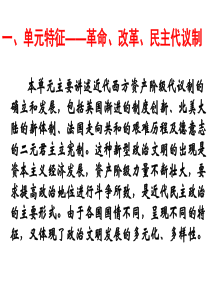 一、单元特征——革命、改革、民主代议制
本单元主要讲述近代西方资产阶级代议制的
确立和发展，包括英国渐进的制度创新、北美大
陆的新体制、法国走向共和的艰难历程及德意志
的二元君主立宪制。这种新型政治文明的出现是
资本主义经济发展、资产阶级力量不断壮大，要
求提高政治地位进行斗争所致，是近代民主政治
的主要形式。由于各国国情不同，呈现不同的特
征，又体现了政治文明发展的多元化、多样性。